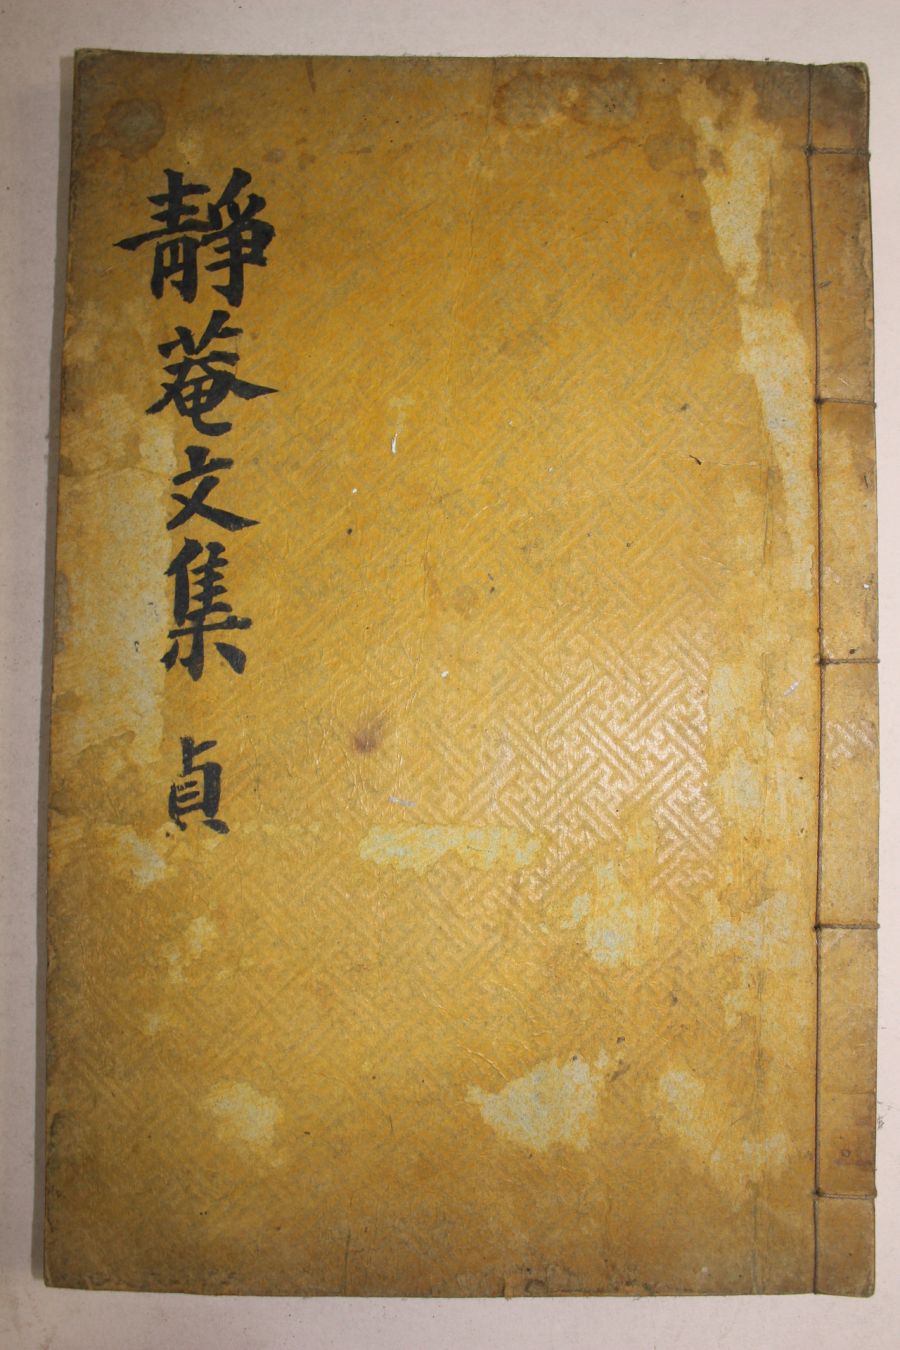 靜菴文集 貞